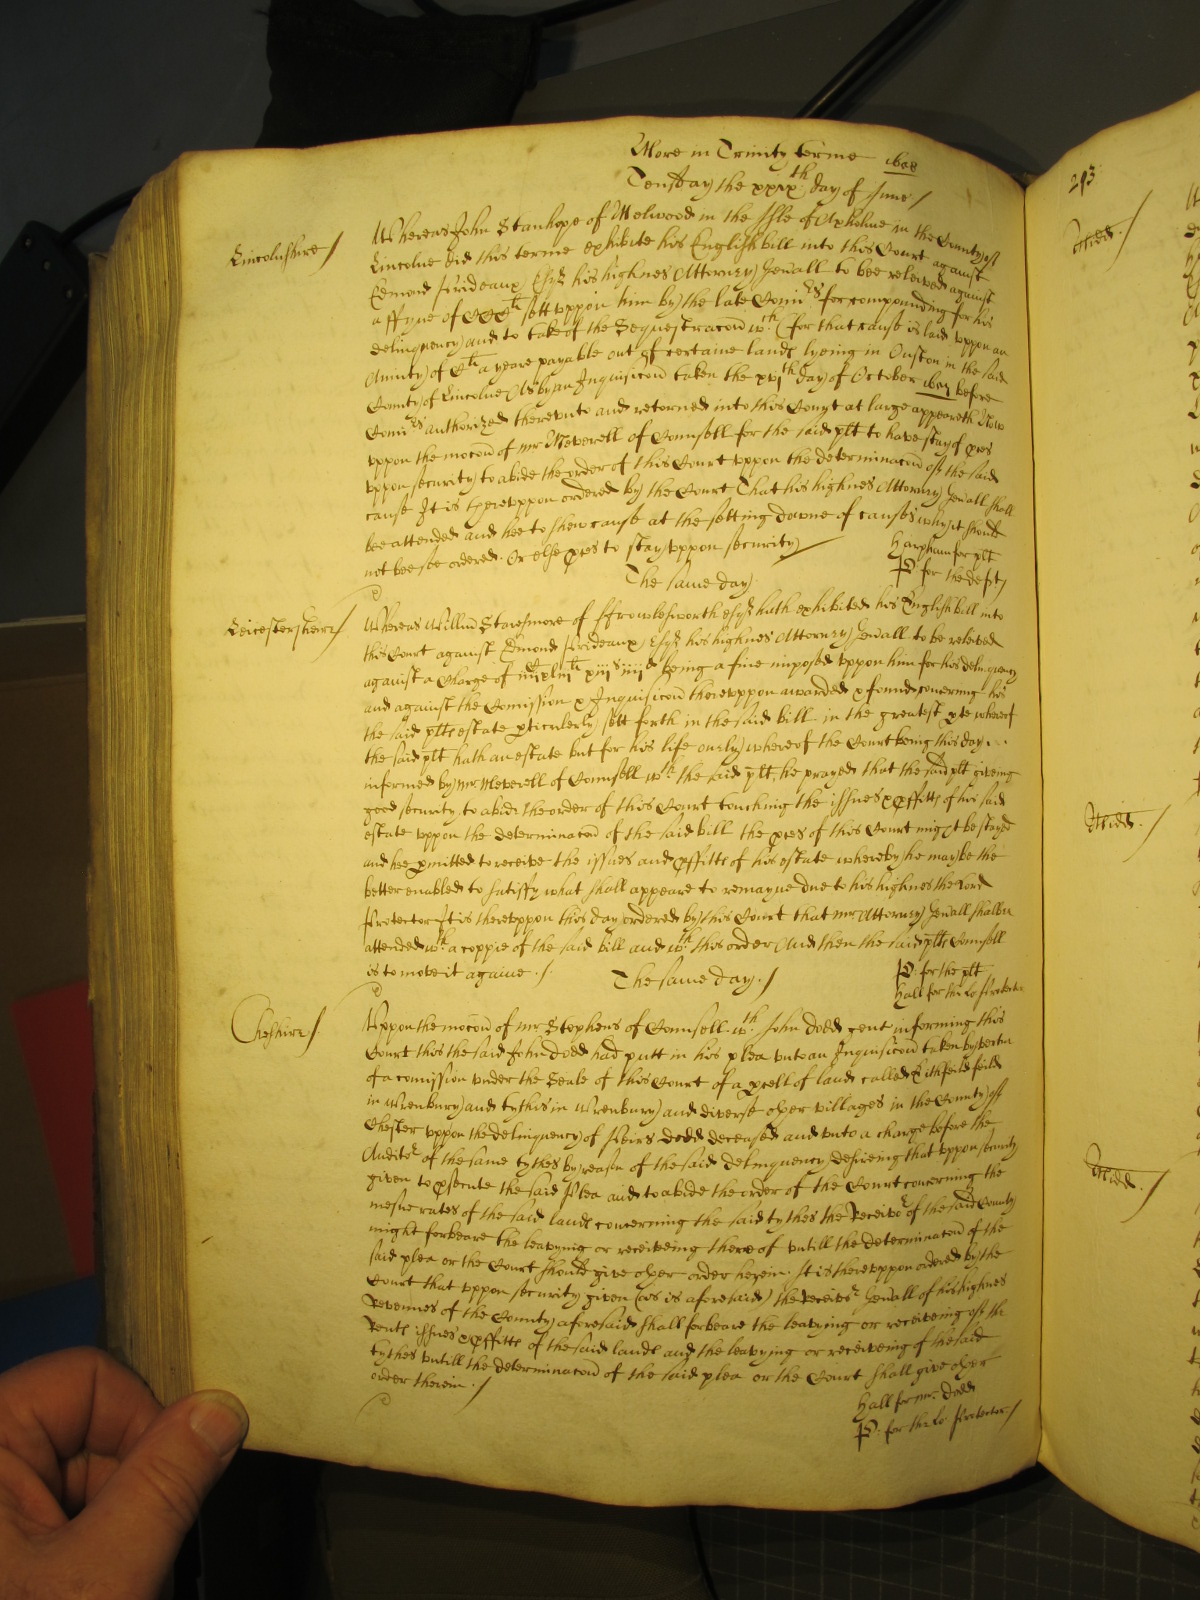 More in Trinity terme 1658
Tuesday the xxixth day of June /
Lincolnshire /
Whereas John Stanhope of Melwood in the Isle of Axholme in the County of
Lincolne did this terme exhibite his English bill into this Court against
Edmond Prideaux Esqr his highnes Attorney Genall to bee releived against
a ffyne of sett uppon him by the late Comrs for compounding for his
delinquency and to take of the Sequestracon wch (for that cause is laid uppon an
Anuity) of a yeare payable out of certaine lands lyeing in Ouston in the said
County of Lincolne As by an Inquisicon taken the xvjth day of October before
Comrs authorized thereunto and returned into this Court at large appeareth Now
uppon the mocon of mr Meverell of Counsell for the said plt to have stay of pces
uppon security to abide the order of this Court uppon the determinacon of the said
cause It is thereuppon ordered by the Court That his highnes Attorney Genall shall
bee attended and hee to shew cause at the setting downe of causes why it should
not bee soe ordered. Or else pces to stay uppon security
Harpham for plt
P for the deft /
The same day.
Leicestershire /
Whereas Willm Staresmore of ffrowlesworth esqr hath exhibited his English bill into
this Court against Edmond Prideaux Esqr his highnes Attorney Genall to be releived
against a Charge of being a fine imposed uppon him for his delinquency
and against the Comission & Inquisicon thereuppon awarded & found concerning his
the said plts estate pticulerly sett forth in the said bill in the greatest pte whereof
the said plt hath an estate but for his life onely whereof the Court being this day
informed by mr Meverell of Counsell wth the said plt, he prayed that the said plt giveing
good security to abide the order of this Court touching the issues & pffitts of his said
estate uppon the determinacon of the said bill the pces of this Court might be stayed
and hee pmitted to receive the issues and pffitts of his estate whereby he may be the
better enabled to satisfy what shall appeare to remayne due to his highnes the Lord
Protector It is thereuppon this day ordered by this Court that mr Attorney Genall shalbe
attended wth a coppie of the said bill and wth this order And then the said plts Counsell
is to move it againe. /
P: for the plt
Hall for the Lo: Protector
The same day. /
Cheshire /
Uppon the mocon of mr Stephens of Counsell wth John Dodd gent informing this
Court this the said John Dodd had putt in his plea unto an Inquisicon taken by vertue
of a comission under the Seale of this Court of a pcell of land called feild
in Wrenbury and tythes in Wrenbury and diverse other villages in the County of
Chester uppon the delinquency of Peirs Dodd deceased and unto a charge before the
Auditor of the same tythes by reason of the said delinquency desireing that uppon security
given to psecute the said Plea and to abide the order of the Court concerning the
mesne rates of the said lands concerning the said tythes the Receivor of the said County
might forbeare the leavynig or receiveing thereof untill the determinacon of the
said plea or the Court should give other order herein. It is thereuppon ordered by the
Court that uppon security given (as is aforesaid) the Receivor Genall of his highnes
Revenues of the County aforesaid shall forbeare the leavying or receiveing of the
Rents issues & pffitts of the said lands and the leavying or receiveing of the said
tythes untill the determinacon of the said plea or the Court shall give other
order therein. /
Hall for mr. Dodd
P: for the Lo: Protector /
293
Midd. /
Midd. /
Midd. /